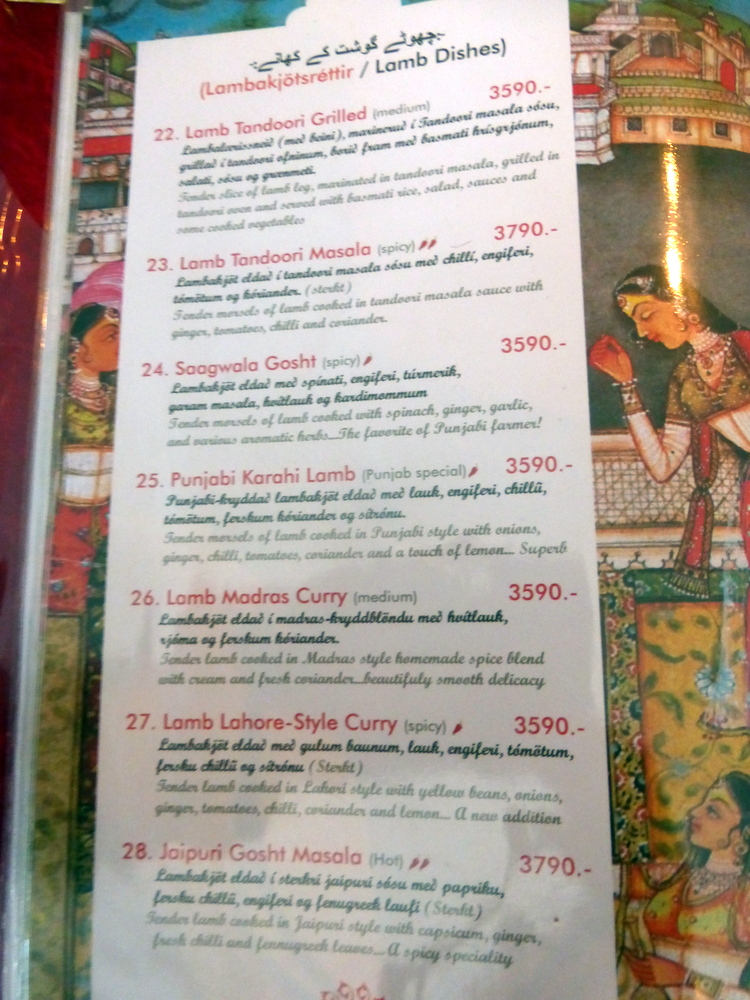 چھوٹے گوشت کے کھانے
(Lambakjötsréttir / Lamb Dishes)
22. Lamb Tandoori Grilled (medium) 3590.-
Lambalærissneið (með beini), marinerað í Tandoori masala sósu,
grillað í tandoori ofninum, borið fram með basmati hrísgrjónum,
salati, sósu og grænmeti.
Tender slice of lamb leg, marinated in tandoori masala, grilled in
tandoori oven and served with basmati rice, salad, sauces and
some cooked vegetables
23. Lamb Tandoori Masala (spicy) 3790.-
Lambakjöt eldað í tandoori masala sósu með chillí, engiferi,
tómötum og kóriander. (sterkt)
Tender morsels of lamb cooked in tandoori masala sauce with
ginger, tomatoes, chilli and coriander.
24. Saagwala Gosht (spicy) 3590.-
Lambakjöt eldað með spínati, engiferi, túrmerik,
garam masala, hvítlauk og kardimommum
Tender morsels of lamb cooked with spinach, ginger, garlic,
and various aromatic herbs...The favorite of Punjabi farmer!
25. Punjabi Karahi Lamb (Punjab special) 3590.-
Punjabi-kryddað lambakjöt eldað með lauk, engiferi, chillíi,
tómötum, ferskum kóriander og sítrónu.
Tender morsels of lamb cooked in Punjabi style with onions,
ginger, chilli, tomatoes, coriander and a touch of lemon... Superb
26. Lamb Madras Curry (medium) 3590.-
Lambakjöt eldað í madras-kryddblöndu með hvítlauk,
rjóma og ferskum kóriander.
Tender lamb cooked in Madras style homemade spice blend
with cream and fresh coriander...beautifuly smooth delicacy
27. Lamb Lahore-Style Curry (spicy) 3590.-
Lambakjöt eldað með gulum baunum, lauk, engiferi, tómötum,
fersku chillíi og sítrónu (Sterkt)
Tender lamb cooked in Lahori style with yellow beans, onions,
ginger, tomatoes, chilli, coriander and lemon... A new addition
28. Jaipuri Gosht Masala (Hot) 3790.-
Lambakjöt eldað í sterkri jaipuri sósu með papriku,
fersku chillíi, engiferi og fenugreek laufi (Sterkt)
Tender lamb cooked in Jaipuri style with capsicum, ginger,
fresh chilli and fennugreek leaves... A spicy speciality